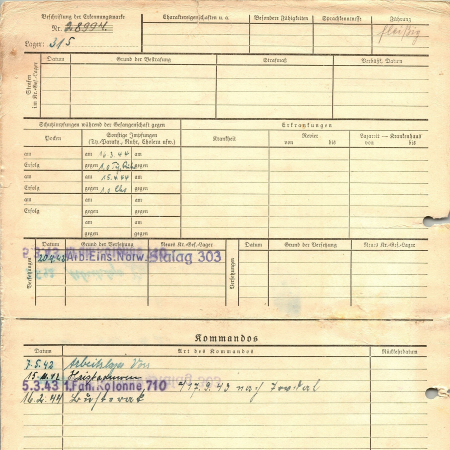 Beschriftung der Erkennungsmarke
Nr. 28994.
Lager: 315
Charaktereigenschaften u. a.
Besondere Fähigkeiten
Sprachkenntnisse
Führung
fleißig
Strafen im Kr.-Gef.-Lager
Datum
Grund der Bestrafung
Strafmaß
Verbüßt, Datum
Schutzimpfungen während der Gefangenschaft gegen
Erkrankungen
Pocken
Sonstige Impfungen
(Ty.-Paraty., Ruhr, Cholera usw.)
Krankheit
Revier
von bis
Lazarett — Krankenhaus
von bis
am am am
Erfolg gegen gegen
am am 15.4.44 am
Erfolg gegen gegen
am am am
Erfolg gegen gegen
am am
gegen gegen
Versetzungen
Datum
Grund der Versetzung
Neues Kr.-Gef.-Lager
Versetzungen
Datum
Grund der Versetzung
Neues Kr.-Gef.-Lager
Arb. Eins. Norw. Stalag 303
Kommandos
Datum
Art des Kommandos
Rückkehrdatum
7.5.42
5.3.43 1. Fah. Kolonne, 710 17.9.43 nach
16.2.44